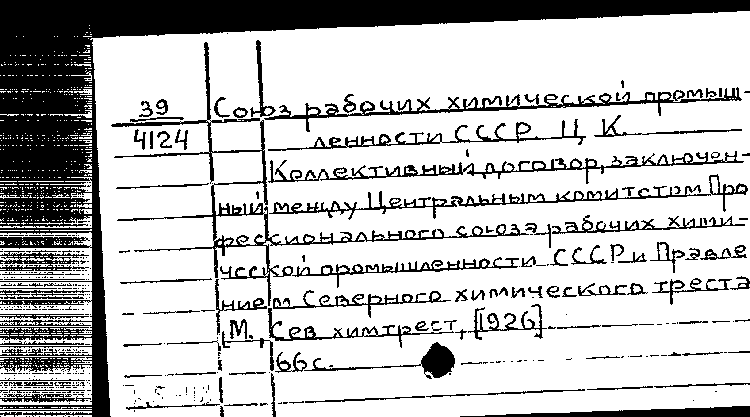 39 Союз рабочих химической промыш-
4124 ленности СССР. Ц. К.
Коллективный договор, заключен-
ный между Центральным комитетом Про
фессионального союза рабочих хими-
ческой промышленности СССР и Правле
нием Северного химического треста
[М., Сев. химтрест, [1926]
66 с.